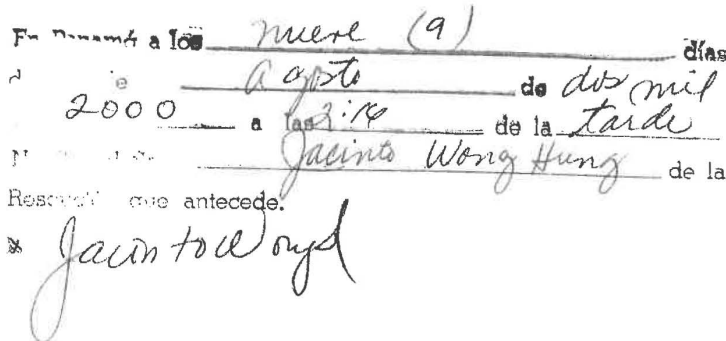 En Panamá a los nueve (9) días
Agosto de dos mil
2000 a las 2:16 de la tarde
Jacinto Wong Hung de la
que antecede.
Jacinto Wong